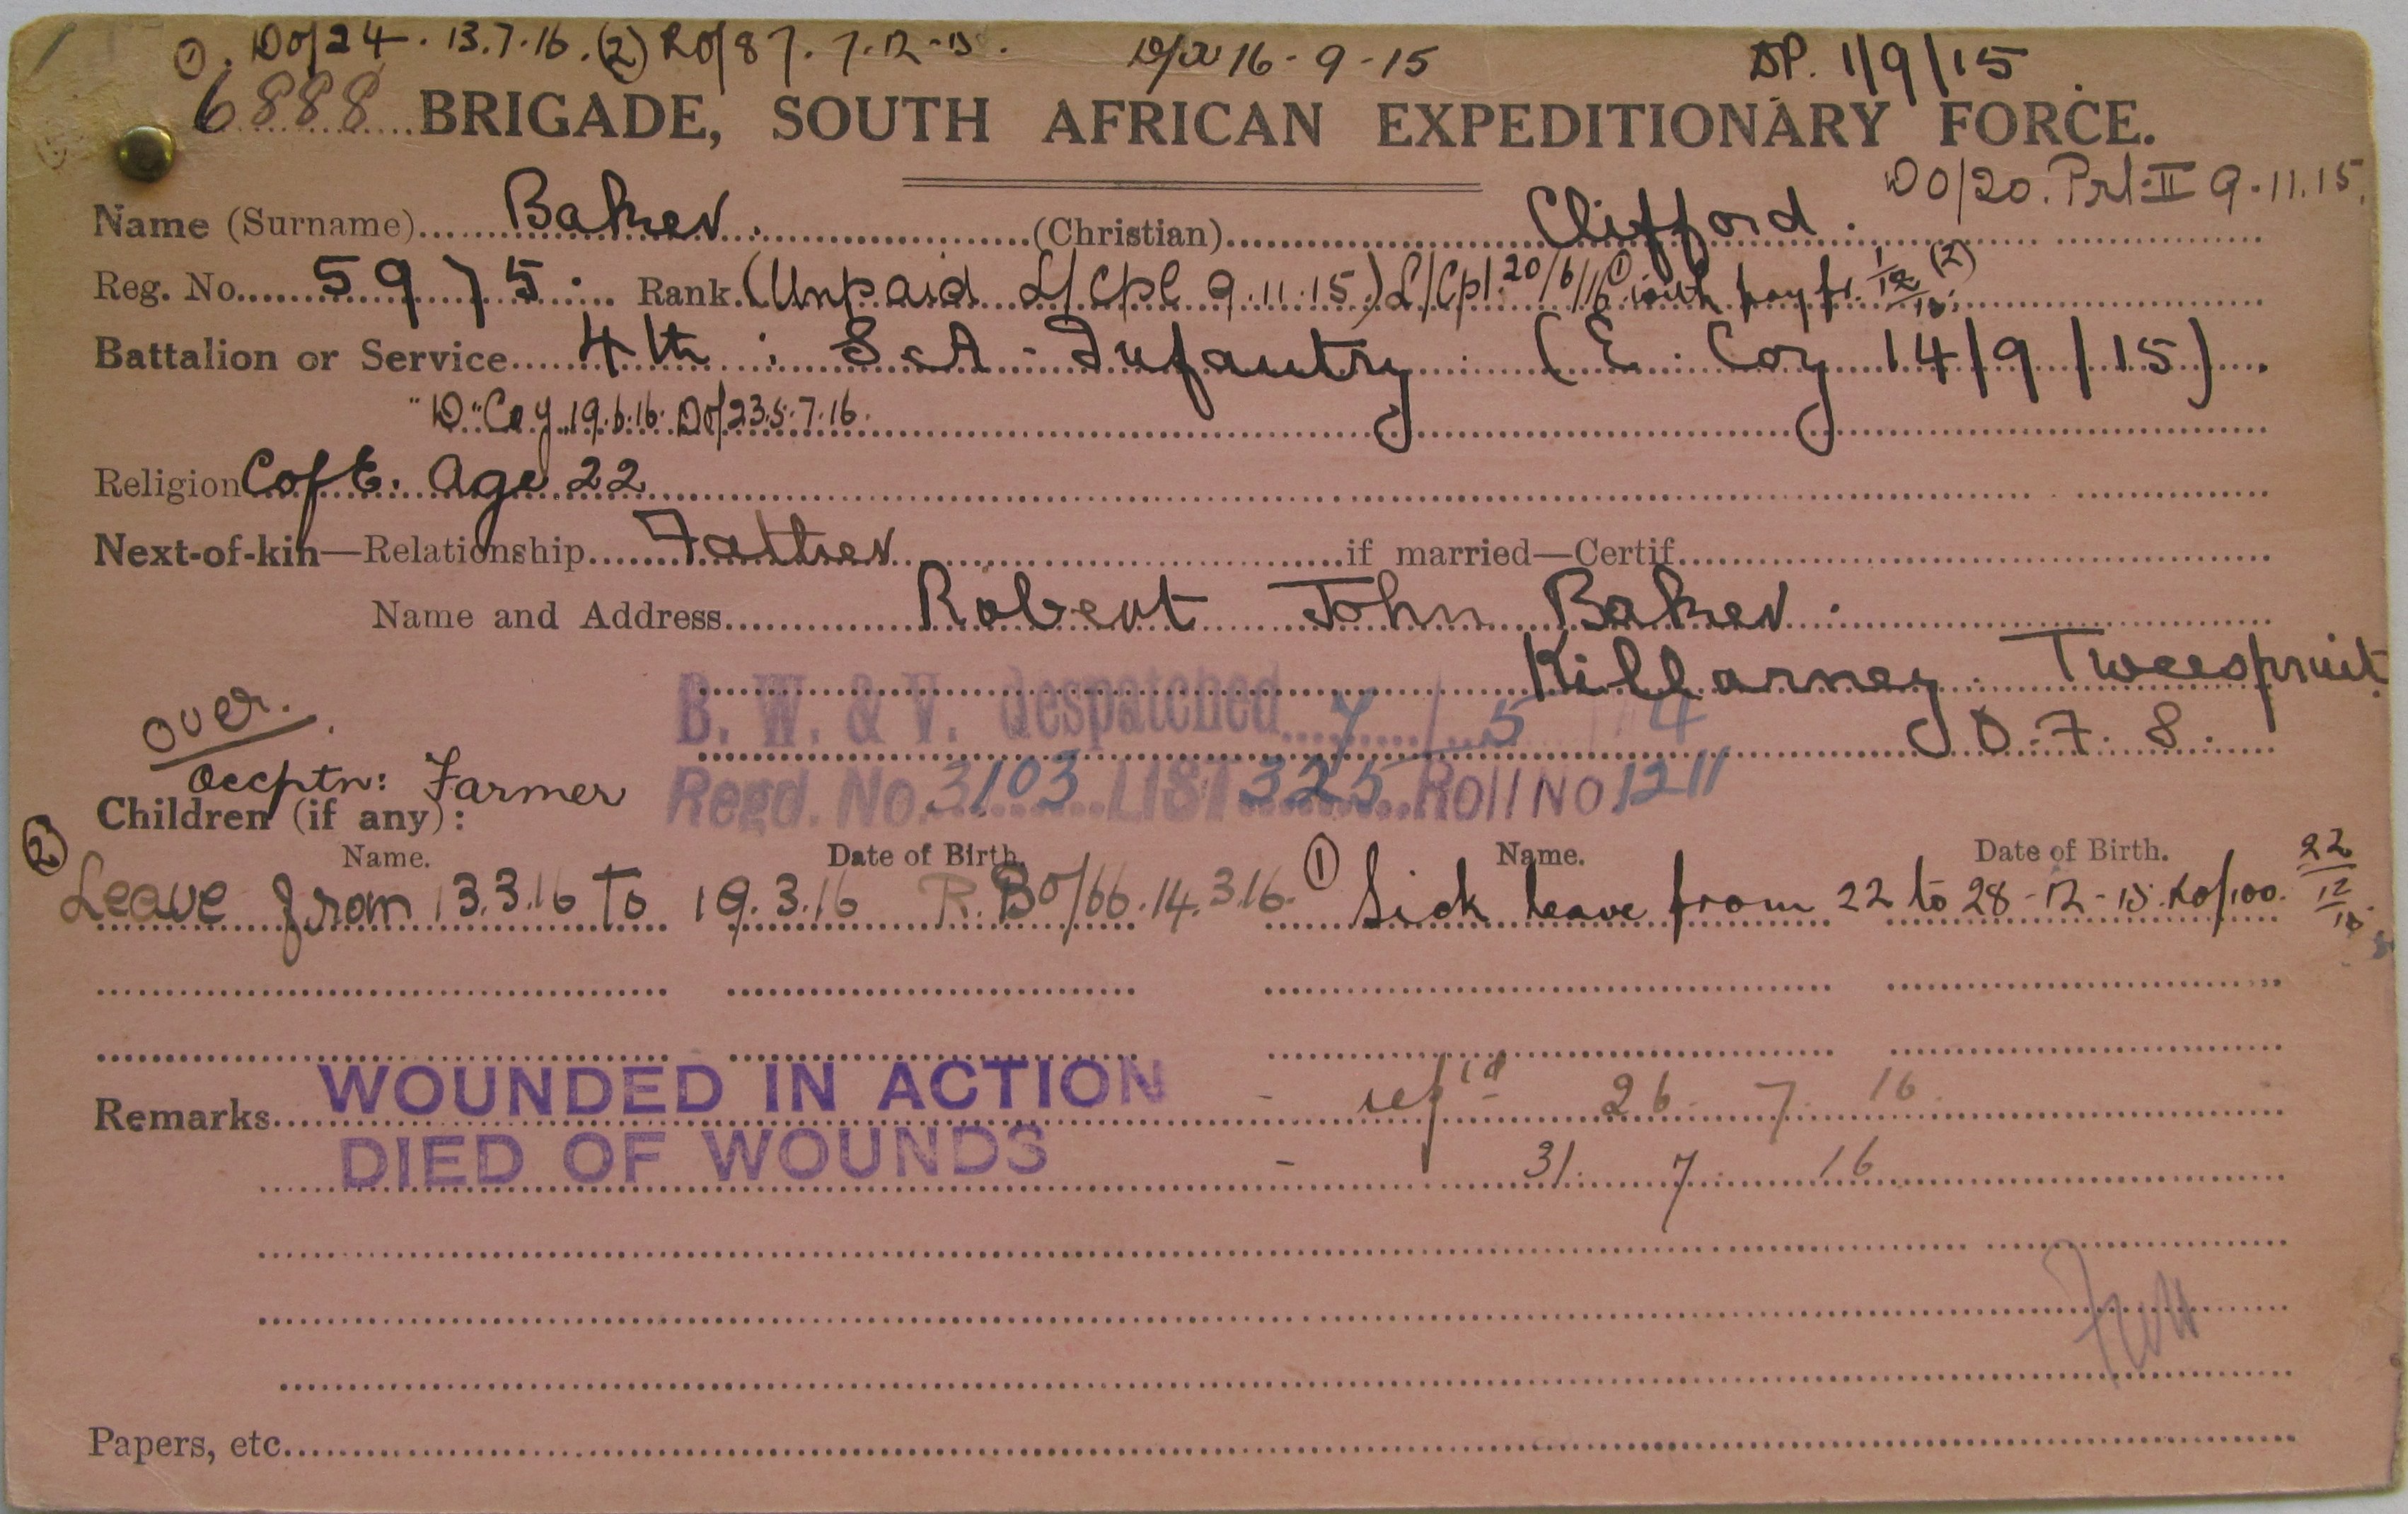 ① . DO/24 . 13.7.16 . (2) RO/87 . 7.12.15 . 16-9-15 DP. 1/9/15
6888 BRIGADE, SOUTH AFRICAN EXPEDITIONARY FORCE.
DO/20. Prt. II 9.11.15.
Name (Surname) Baker . (Christian) Clifford .
Reg. No. 5975 . Rank (Unpaid L/Cpl 9.11.15) L/Cpl 20/6/16 ① with pay fr. 1/12/15 (2)
Battalion or Service 4th : S.A. Infantry (E. Coy 14/9/15)
"D" Coy 19.6.16 DO/23. 5.7.16.
Religion C of E. Age 22
Next-of-kin—Relationship Father if married—Certif.
Name and Address Robert John Baker .
Killarney . Tweespruit
B. W. & V. despatched 7 / 5 / 4
O.F.S.
over.
Occptn: Farmer
Regd. No. 3103 LIST 325 Roll No 1211
Children (if any):
Name. Date of Birth. Name. Date of Birth.
② Leave from 13.3.16 to 19.3.16 R. BO/66. 14.3.16. ① Sick leave from 22 to 28-12-15. RO/100. 22/12/15
Remarks WOUNDED IN ACTION - 26 7 16
DIED OF WOUNDS - 31 7 16
Papers, etc.